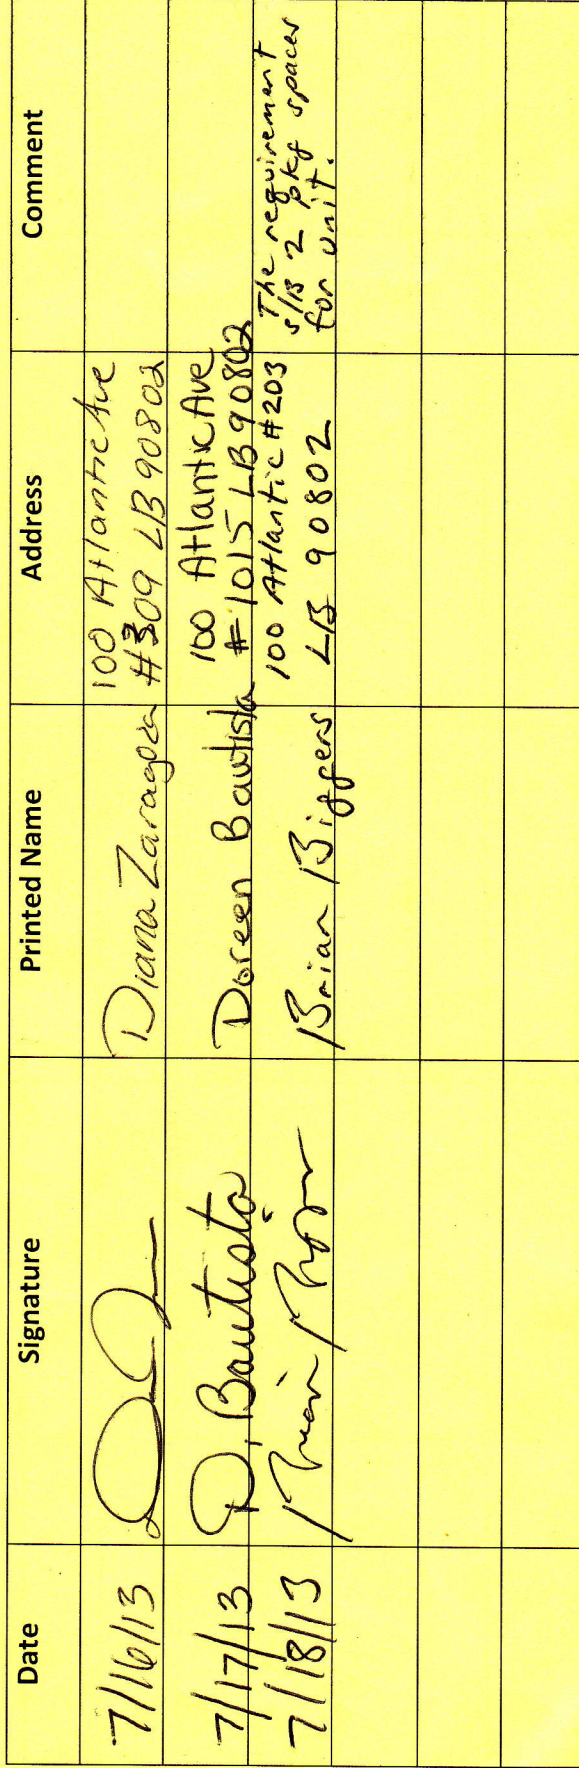 Date Signature Printed Name Address Comment
7/16/13 Diana Zaragoza 100 Atlantic Ave
#309 LB 90802
7/17/13 D. Bautista Doreen Bautista 100 Atlantic Ave
#1015 LB 90802
7/18/13 Brian Biggers 100 Atlantic #203
LB 90802
The requirement
s/B 2 pkg spaces
for unit.